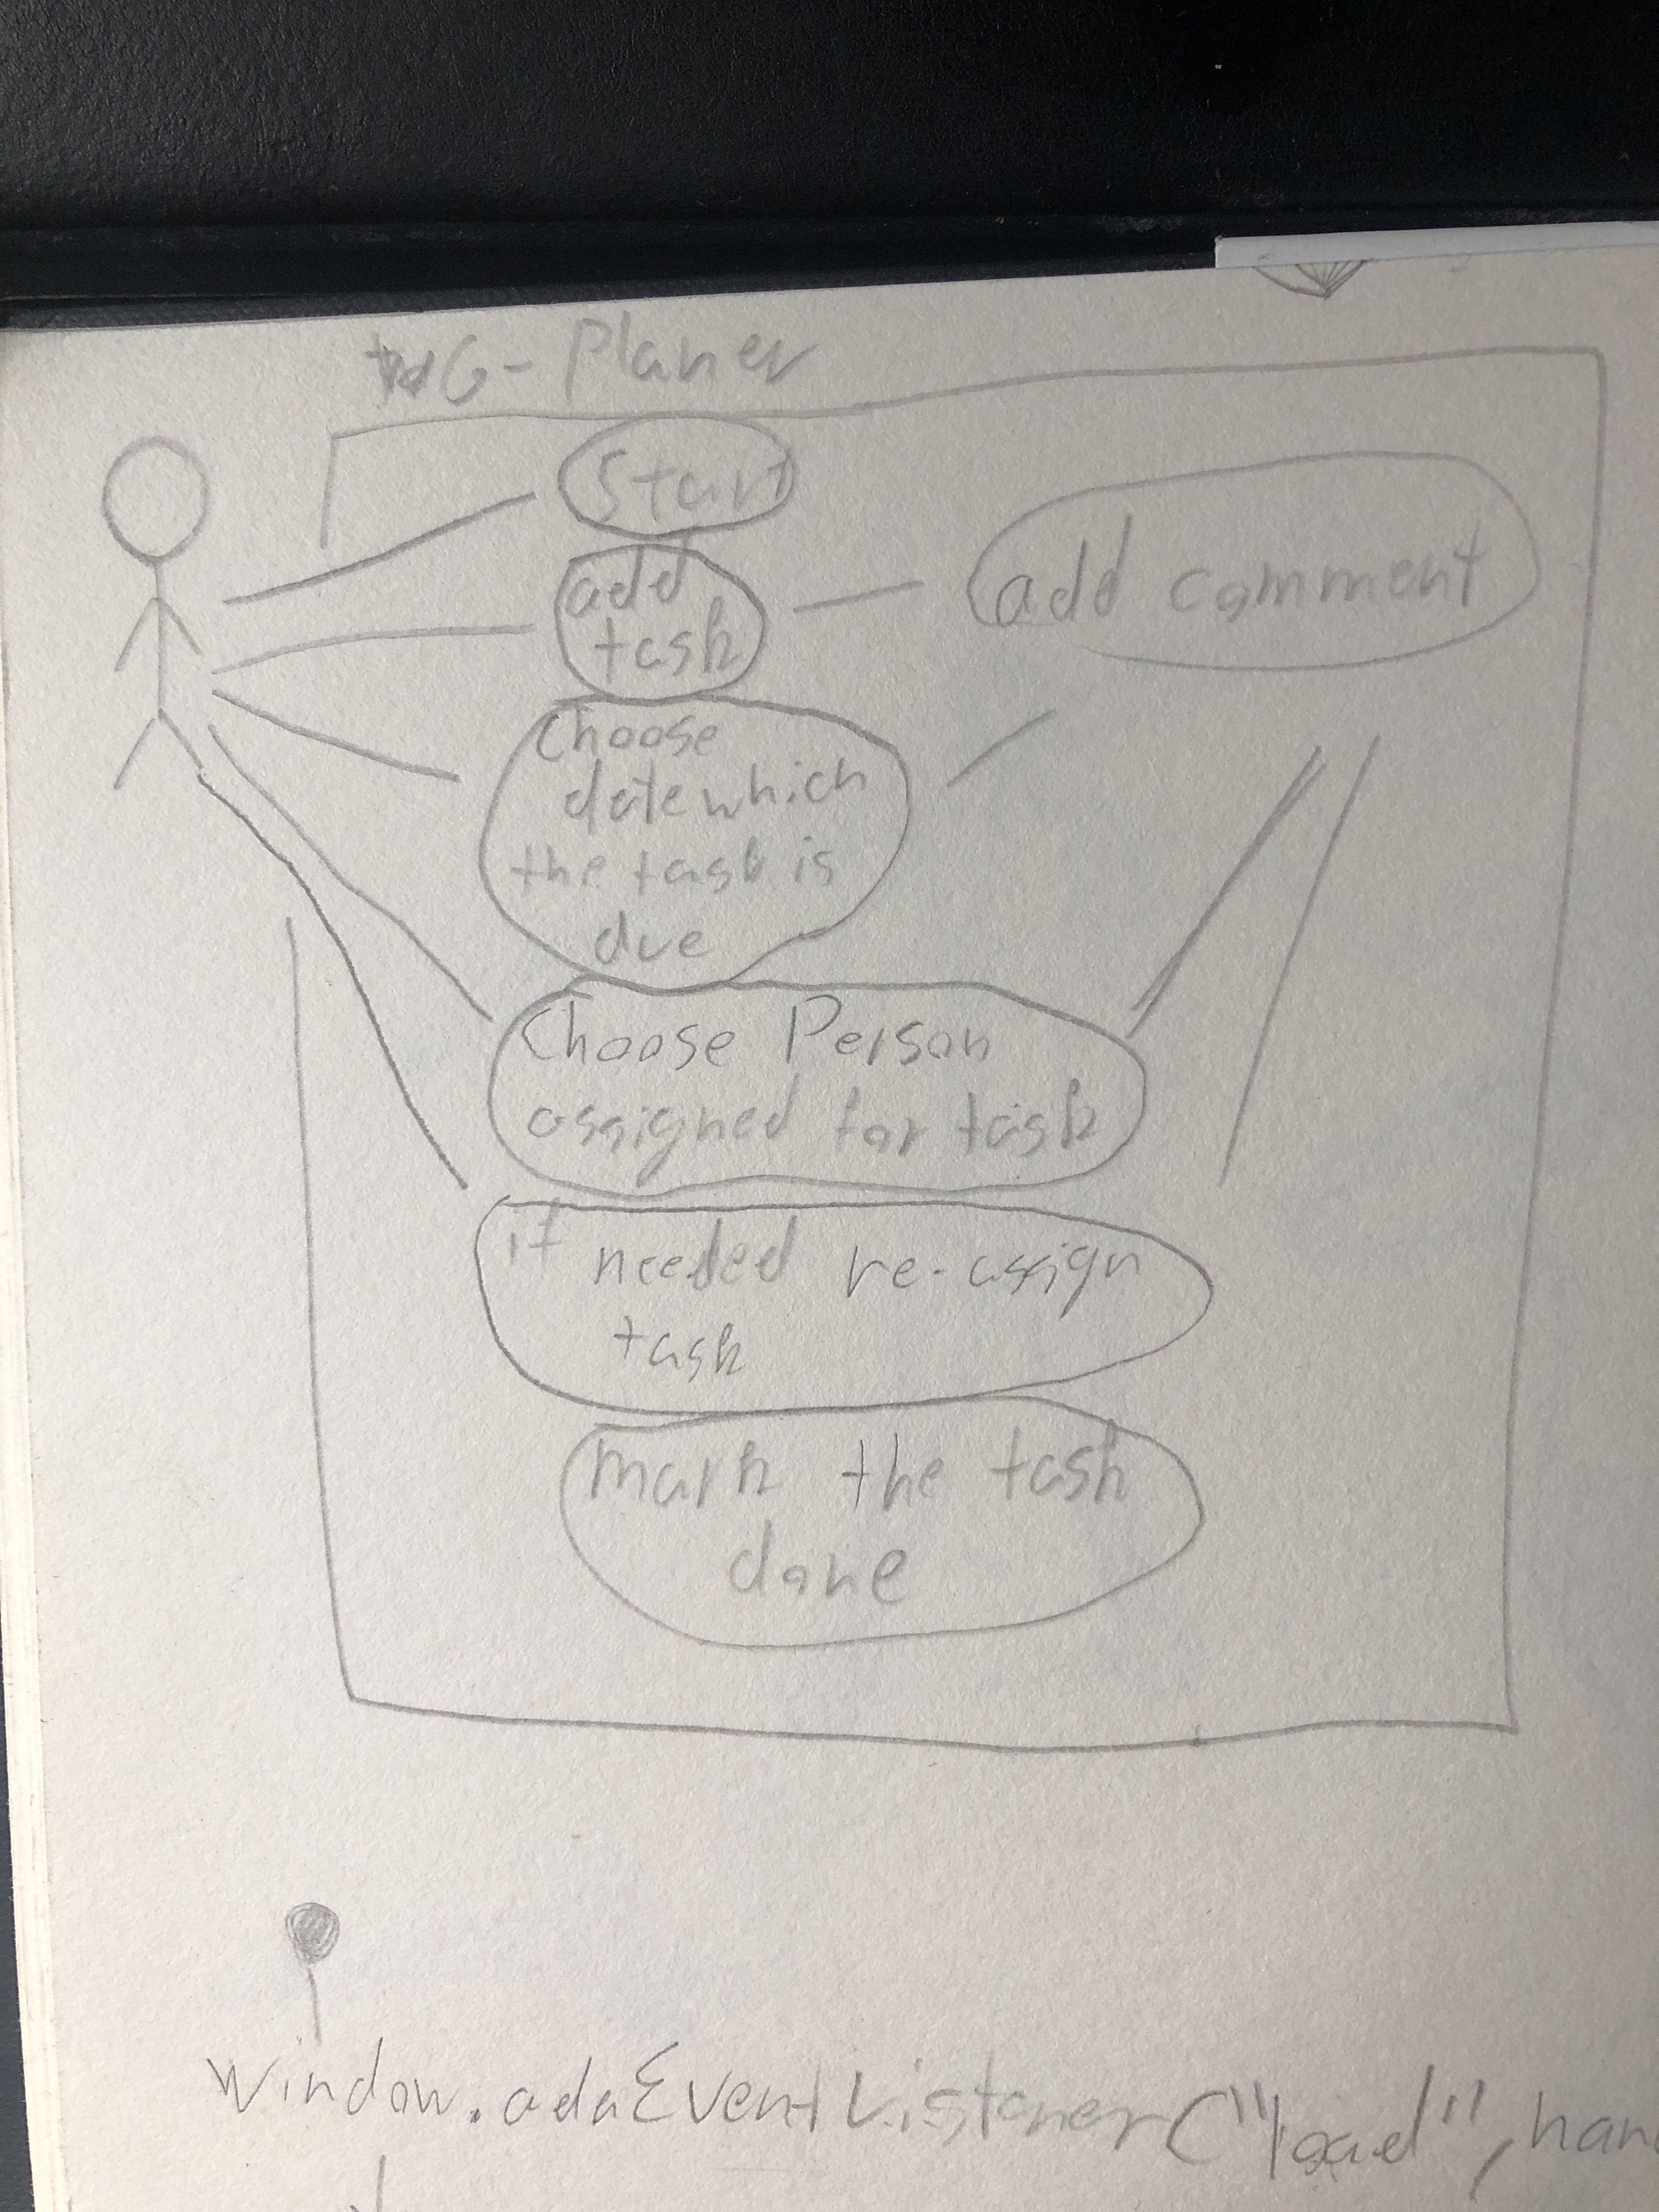 WG-Planer
Start
add
task
add comment
Choose
date which
the task is
due
Choose Person
assigned for task
if needed re-assign
task
mark the task
done
window.addEventListener("load", han